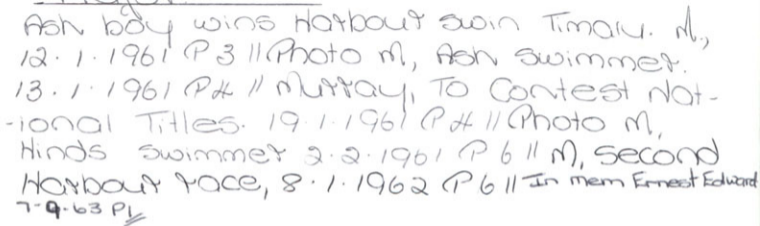 Ash boy wins Harbour swin Timaru. M,
12.1.1961 P3 // Photo M, Ash Swimmer.
13.1.1961 P4 // Murray, To Contest Nat-
-ional Titles. 19.1.1961 P4 // Photo M,
Hinds Swimmer 2.2.1961 P6 // M, Second
Harbour race, 8.1.1962 P6 // In mem Ernest Edward
7-9-63 P1